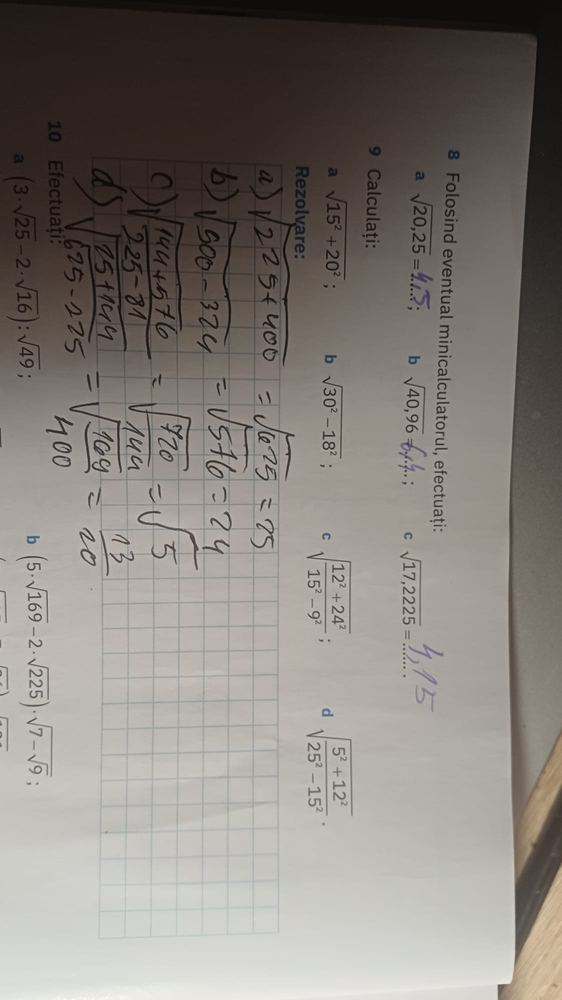 8 Folosind eventual minicalculatorul, efectuați:
a √20,25 = 4,5; b √40,96 = 6,4; c √17,2225 = 4,15
9 Calculați:
a √(15² + 20²) ; b √(30² − 18²) ; c √((12² + 24²)/(15² − 9²)) ; d √((5² + 12²)/(25² − 15²)) .
Rezolvare:
a) √(225+400) = √625 = 25
b) √(900−324) = √576 = 24
c) √((144+576)/(225−81)) = √(720/144) = √5
d) √((25+144)/(625−225)) = √(169/400) = 13/20
10 Efectuați:
a (3·√25 − 2·√16) : √49 ; b (5·√169 − 2·√225)·√7 − √9 ;